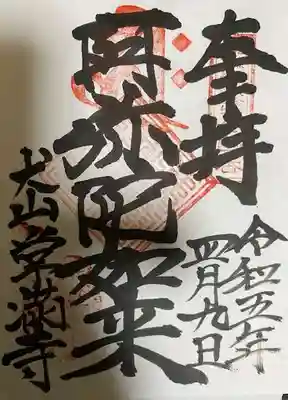 奉拝
令和五年
四月九日
阿弥陀如来
犬山常満寺